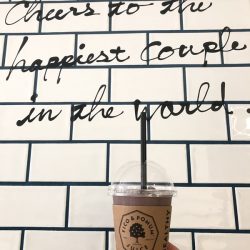 Cheers to the
happiest couple
in the world
FICO & POMUM
JUICE